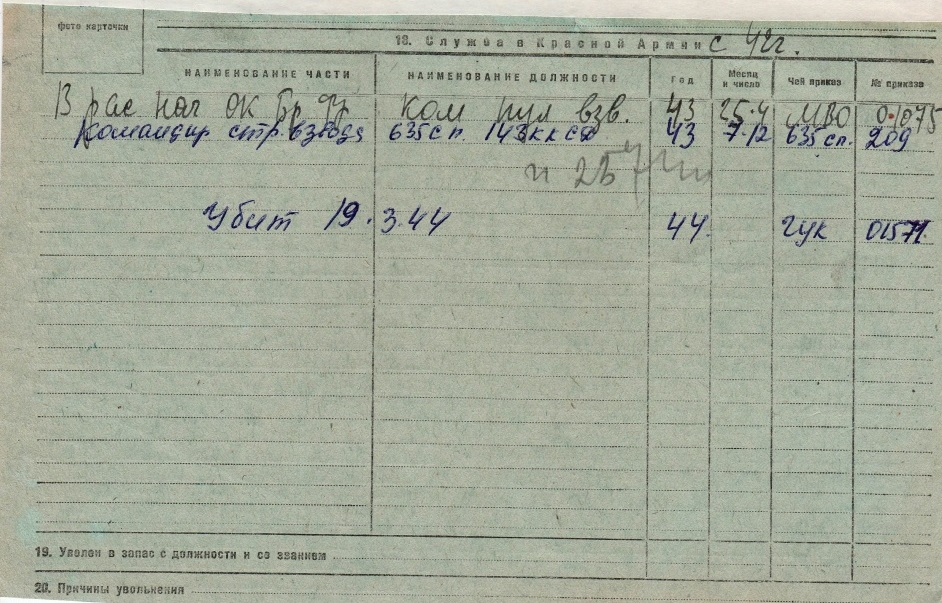 фото карточки
18. Служба в Красной Армии с 42г.
НАИМЕНОВАНИЕ ЧАСТИ НАИМЕНОВАНИЕ ДОЛЖНОСТИ Год Месяц и число Чей приказ № приказа
В рас нач ОК Бр Фр ком пул взв. 43 25·4 МВО 0·1075
Командир стр. взвода 635 сп 143 кк сд 43 7·12 635 сп. 209
Убит 19. 3.44 44. ГУК 01571.
19. Уволен в запас с должности и со званием
20. Причины увольнения